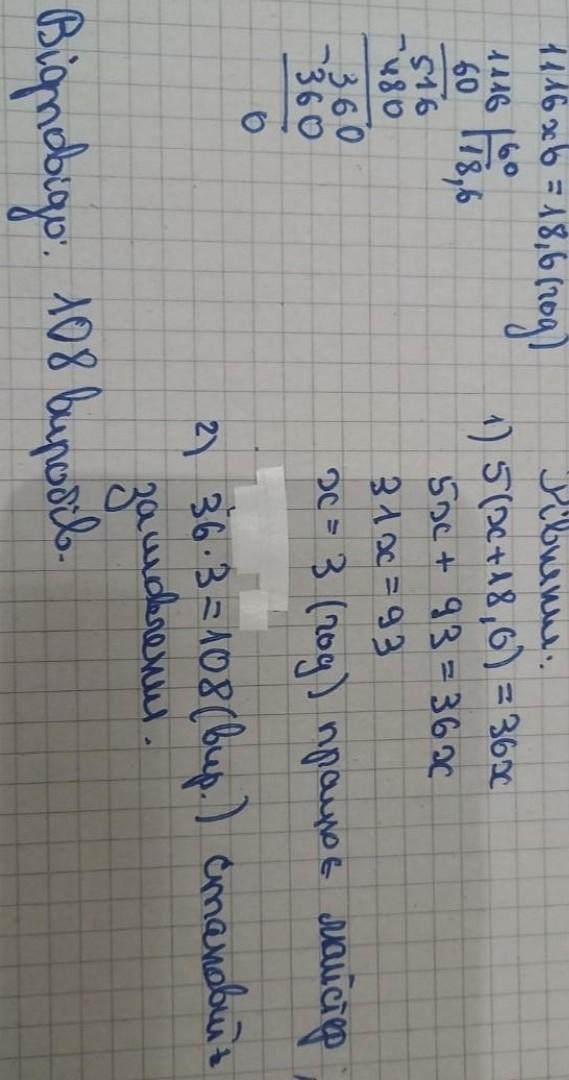 1116 хв = 18,6 (год)
1116 | 60
60 | 18,6
516
-480
360
-360
0
Рівняння:
1) 5(x+18,6) = 36x
5x + 93 = 36x
31x = 93
x = 3 (год) працює майстер
2) 36·3=108 (вир.) становить
замовлення.
Відповідь: 108 виробів.